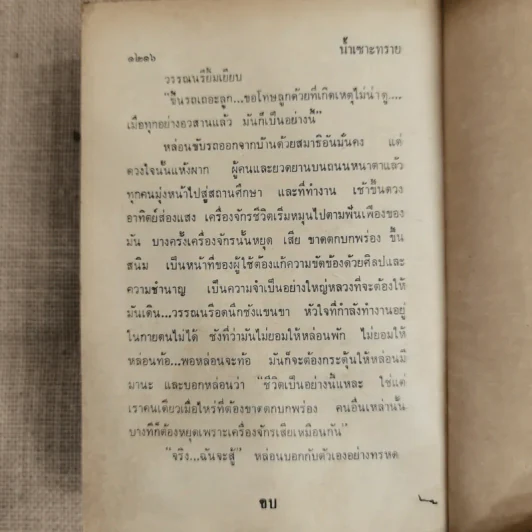 ๑๒๑๖ น้ำเซาะทราย
วรรณนรียิ้มเยียบ
"ขึ้นรถเถอะลูก...ขอโทษลูกด้วยที่เกิดเหตุไม่น่าดู....
เมื่อทุกอย่างอวสานแล้ว มันก็เป็นอย่างนี้"
หล่อนขับรถออกจากบ้านด้วยสมาธิอันมั่นคง แต่
ดวงใจนั้นแห้งผาก ผู้คนและยวดยานบนถนนหนาตาแล้ว
ทุกคนมุ่งหน้าไปสู่สถานศึกษา และที่ทำงาน เช้าขึ้นดวง
อาทิตย์ส่องแสง เครื่องจักรชีวิตเริ่มหมุนไปตามฟันเฟืองของ
มัน บางครั้งเครื่องจักรนั้นหยุด เสีย ขาดตกบกพร่อง ขึ้น
สนิม เป็นหน้าที่ของผู้ใช้ต้องแก้ความขัดข้องด้วยศิลปและ
ความชำนาญ เป็นความจำเป็นอย่างใหญ่หลวงที่จะต้องให้
มันเดิน...วรรณนรีอดนึกชังแขนขา หัวใจที่กำลังทำงานอยู่
ในกายตนไม่ได้ ชังที่ว่ามันไม่ยอมให้หล่อนพัก ไม่ยอมให้
หล่อนท้อ...พอหล่อนจะท้อ มันก็จะต้องกระตุ้นให้หล่อนมี
มานะ และบอกหล่อนว่า "ชีวิตเป็นอย่างนี้แหละ ใช่แต่
เราคนเดียวเมื่อไหร่ที่ต้องขาดตกบกพร่อง คนอื่นเหล่านั้น
บางทีก็ต้องหยุดเพราะเครื่องจักรเสียเหมือนกัน"
"จริง...ฉันจะสู้" หล่อนบอกกับตัวเองอย่างทรหด
จบ